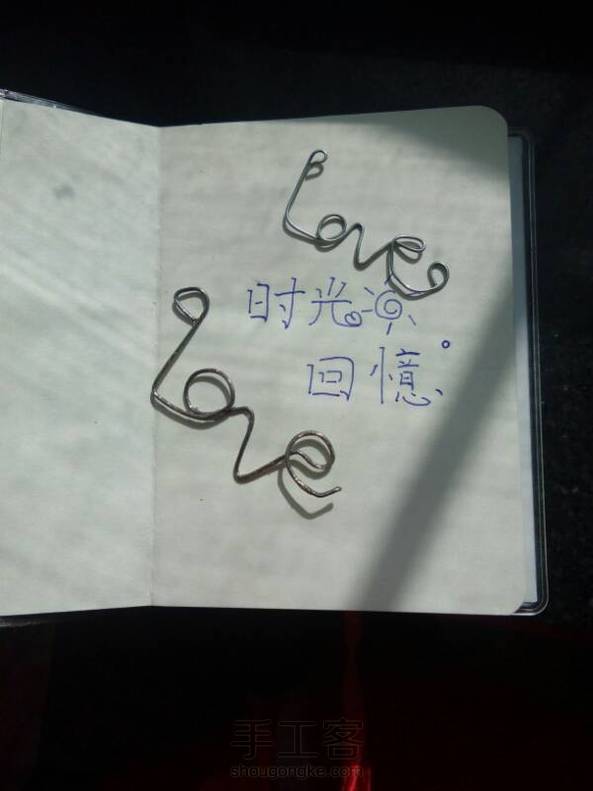 love
时光
回憶
love
手工客
shougongke.com